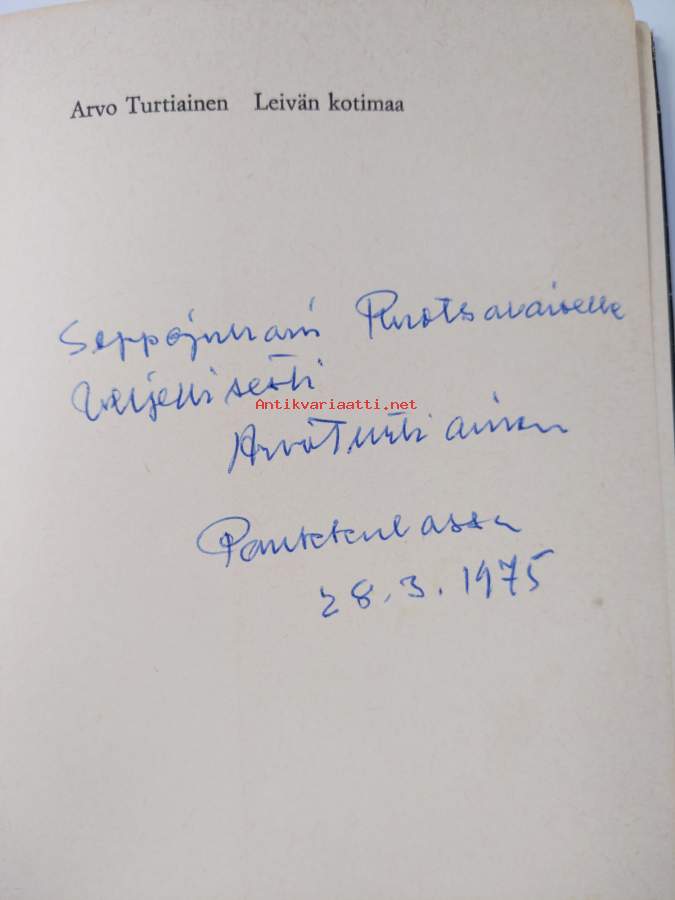 Arvo Turtiainen Leivän kotimaa
Seppojuhani Ruotsalaiselle
Veljellisesti
Antikvariaatti.net
Arvo Turtiainen
28.3.1975